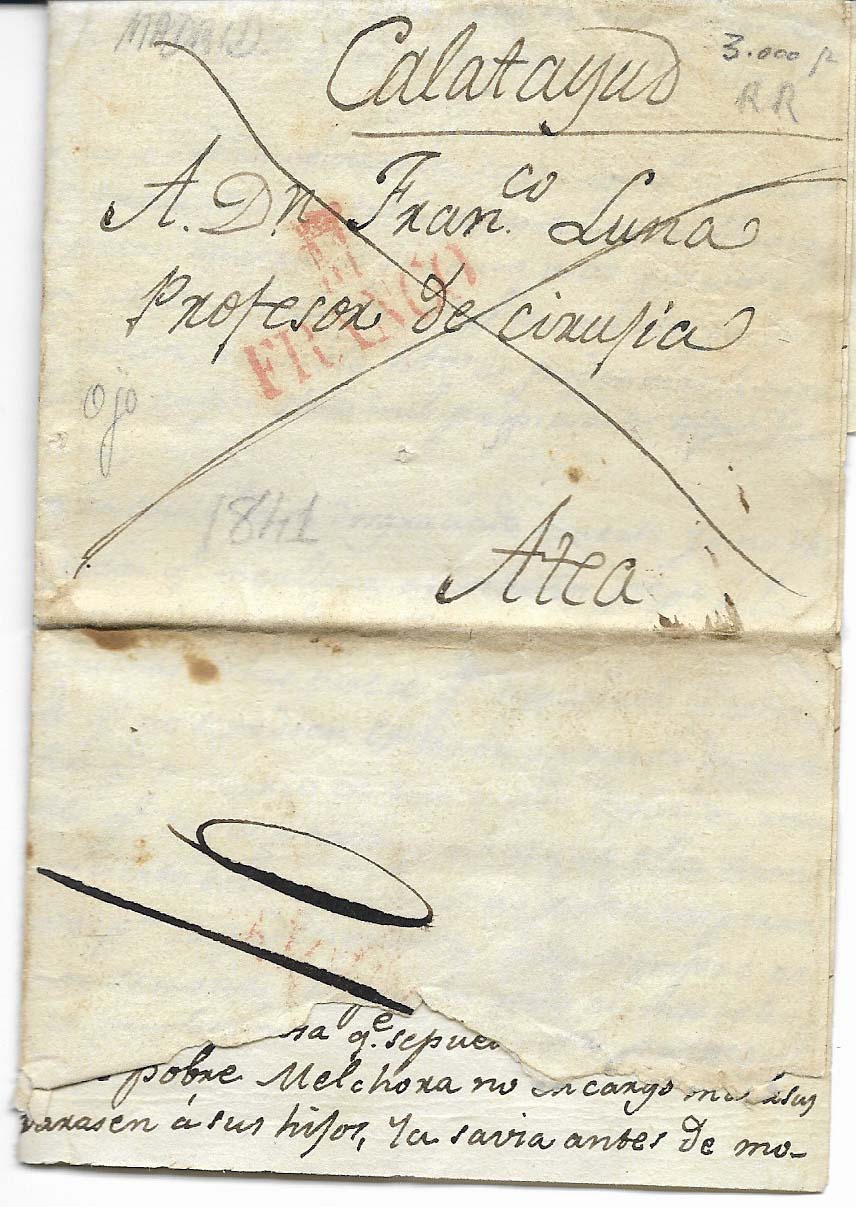 MADRID
Calatayud
3.000 p
RR
A. Dn Fran.co Luna
FRANCO
Profesor de cirujia
ojo
1841
Atea
10
qe. sepue
pobre Melchora no encargo
á sus hijos, Ya savia antes de mo-